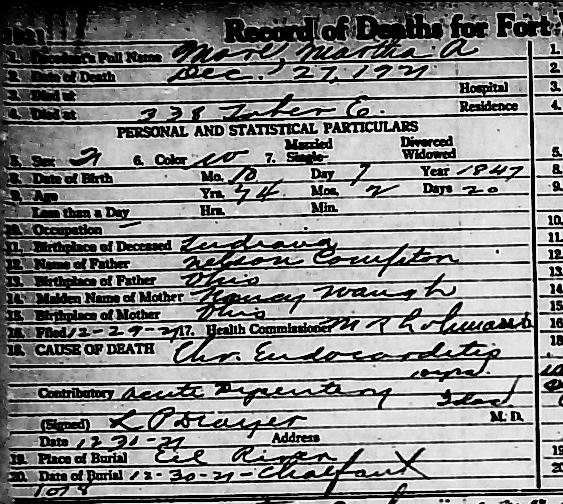 1921 Record of Deaths for Fort
1. Decedent's Full Name Martha A
2. Date of Death Dec. 27, 1921
3. Died at Hospital
4. Died at 338 Taber E. Residence
PERSONAL AND STATISTICAL PARTICULARS
5. Sex F 6. Color W 7. Married Single Divorced Widowed
8. Date of Birth Mo. 10 Day 7 Year 1847
9. Age Yrs. 74 Mos. 2 Days 20
Less than a Day Hrs. Min.
10. Occupation —
11. Birthplace of Deceased Indiana
12. Name of Father Nelson Compton
13. Birthplace of Father Ohio
14. Maiden Name of Mother Nancy Waugh
15. Birthplace of Mother Ohio
16. Filed 12-29-21 17. Health Commissioner
18. CAUSE OF DEATH Chr. Endocarditis
10 yrs.
Contributory Acute Dysentery
(Signed) L P Drayer M. D.
Date 12-31-21 Address
19. Place of Burial Eel River
20. Date of Burial 12-30-21 - Chalfant